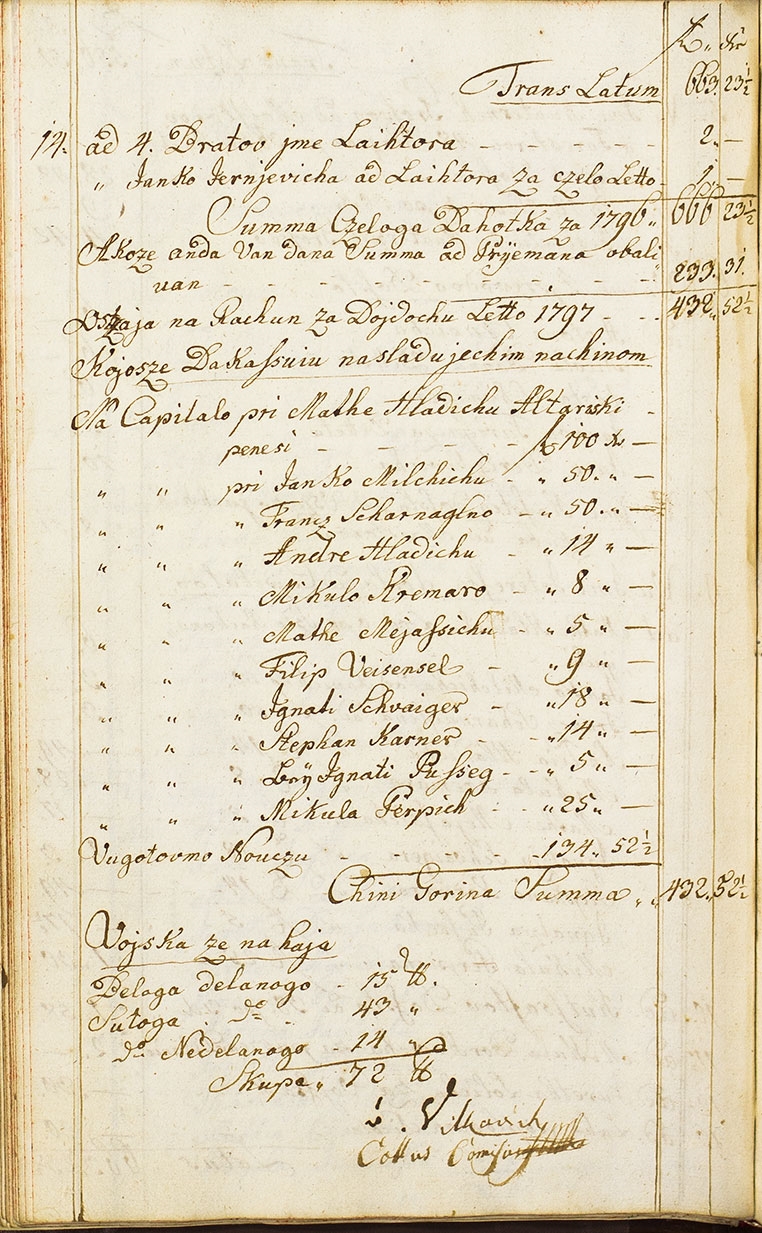 R" dr
Trans Latum 663. 23½
14. ad 4. Bratov jme Laihtora - - - - - 2. —
" Janko Jernjevicha ad Laihtora za czelo Letto 1. —
Summa Czeloga Dahotka za 1796" 666 23½
Akoze anda Van dana Summa ad Pryemana obali
van - - - - - - - 233. 31.
Ostaja na Rachun za Dojdochu Letto 1797 - - - 432" 52½
Kojosze Dakassuiu nasladujechim nachinom
Na Capitalo pri Mathe Hladichu Altariski -
penesi - - - - - R 100 dr —
" " pri Janko Milchichu - " 50. " —
" " " Francz Scharnaglno - " 50. " —
" " " Andre Hladichu - " 14 " —
" " " Mikulo Kremaro - " 8 " —
" " " Mathe Mejassichu - " 5 " —
" " " Filip Veisensel - " 9 " —
" " " Ignati Schvaiger - " 18 " —
" " " Stephan Karner - " 14 " —
" " " Ignati Pusseg - - " 5 " —
" " " Mikula Perpich - - " 25 " —
Vugotovmo Nouczu - - - - - 134" 52½
Chini Gorina Summa " " 432" 52½
Vojska ze na haja
Beloga delanogo - 15 ℔.
Sutoga do - 43 "
do Nedelanogo - 14 "
Skupa " 72 ℔
Vilkovich